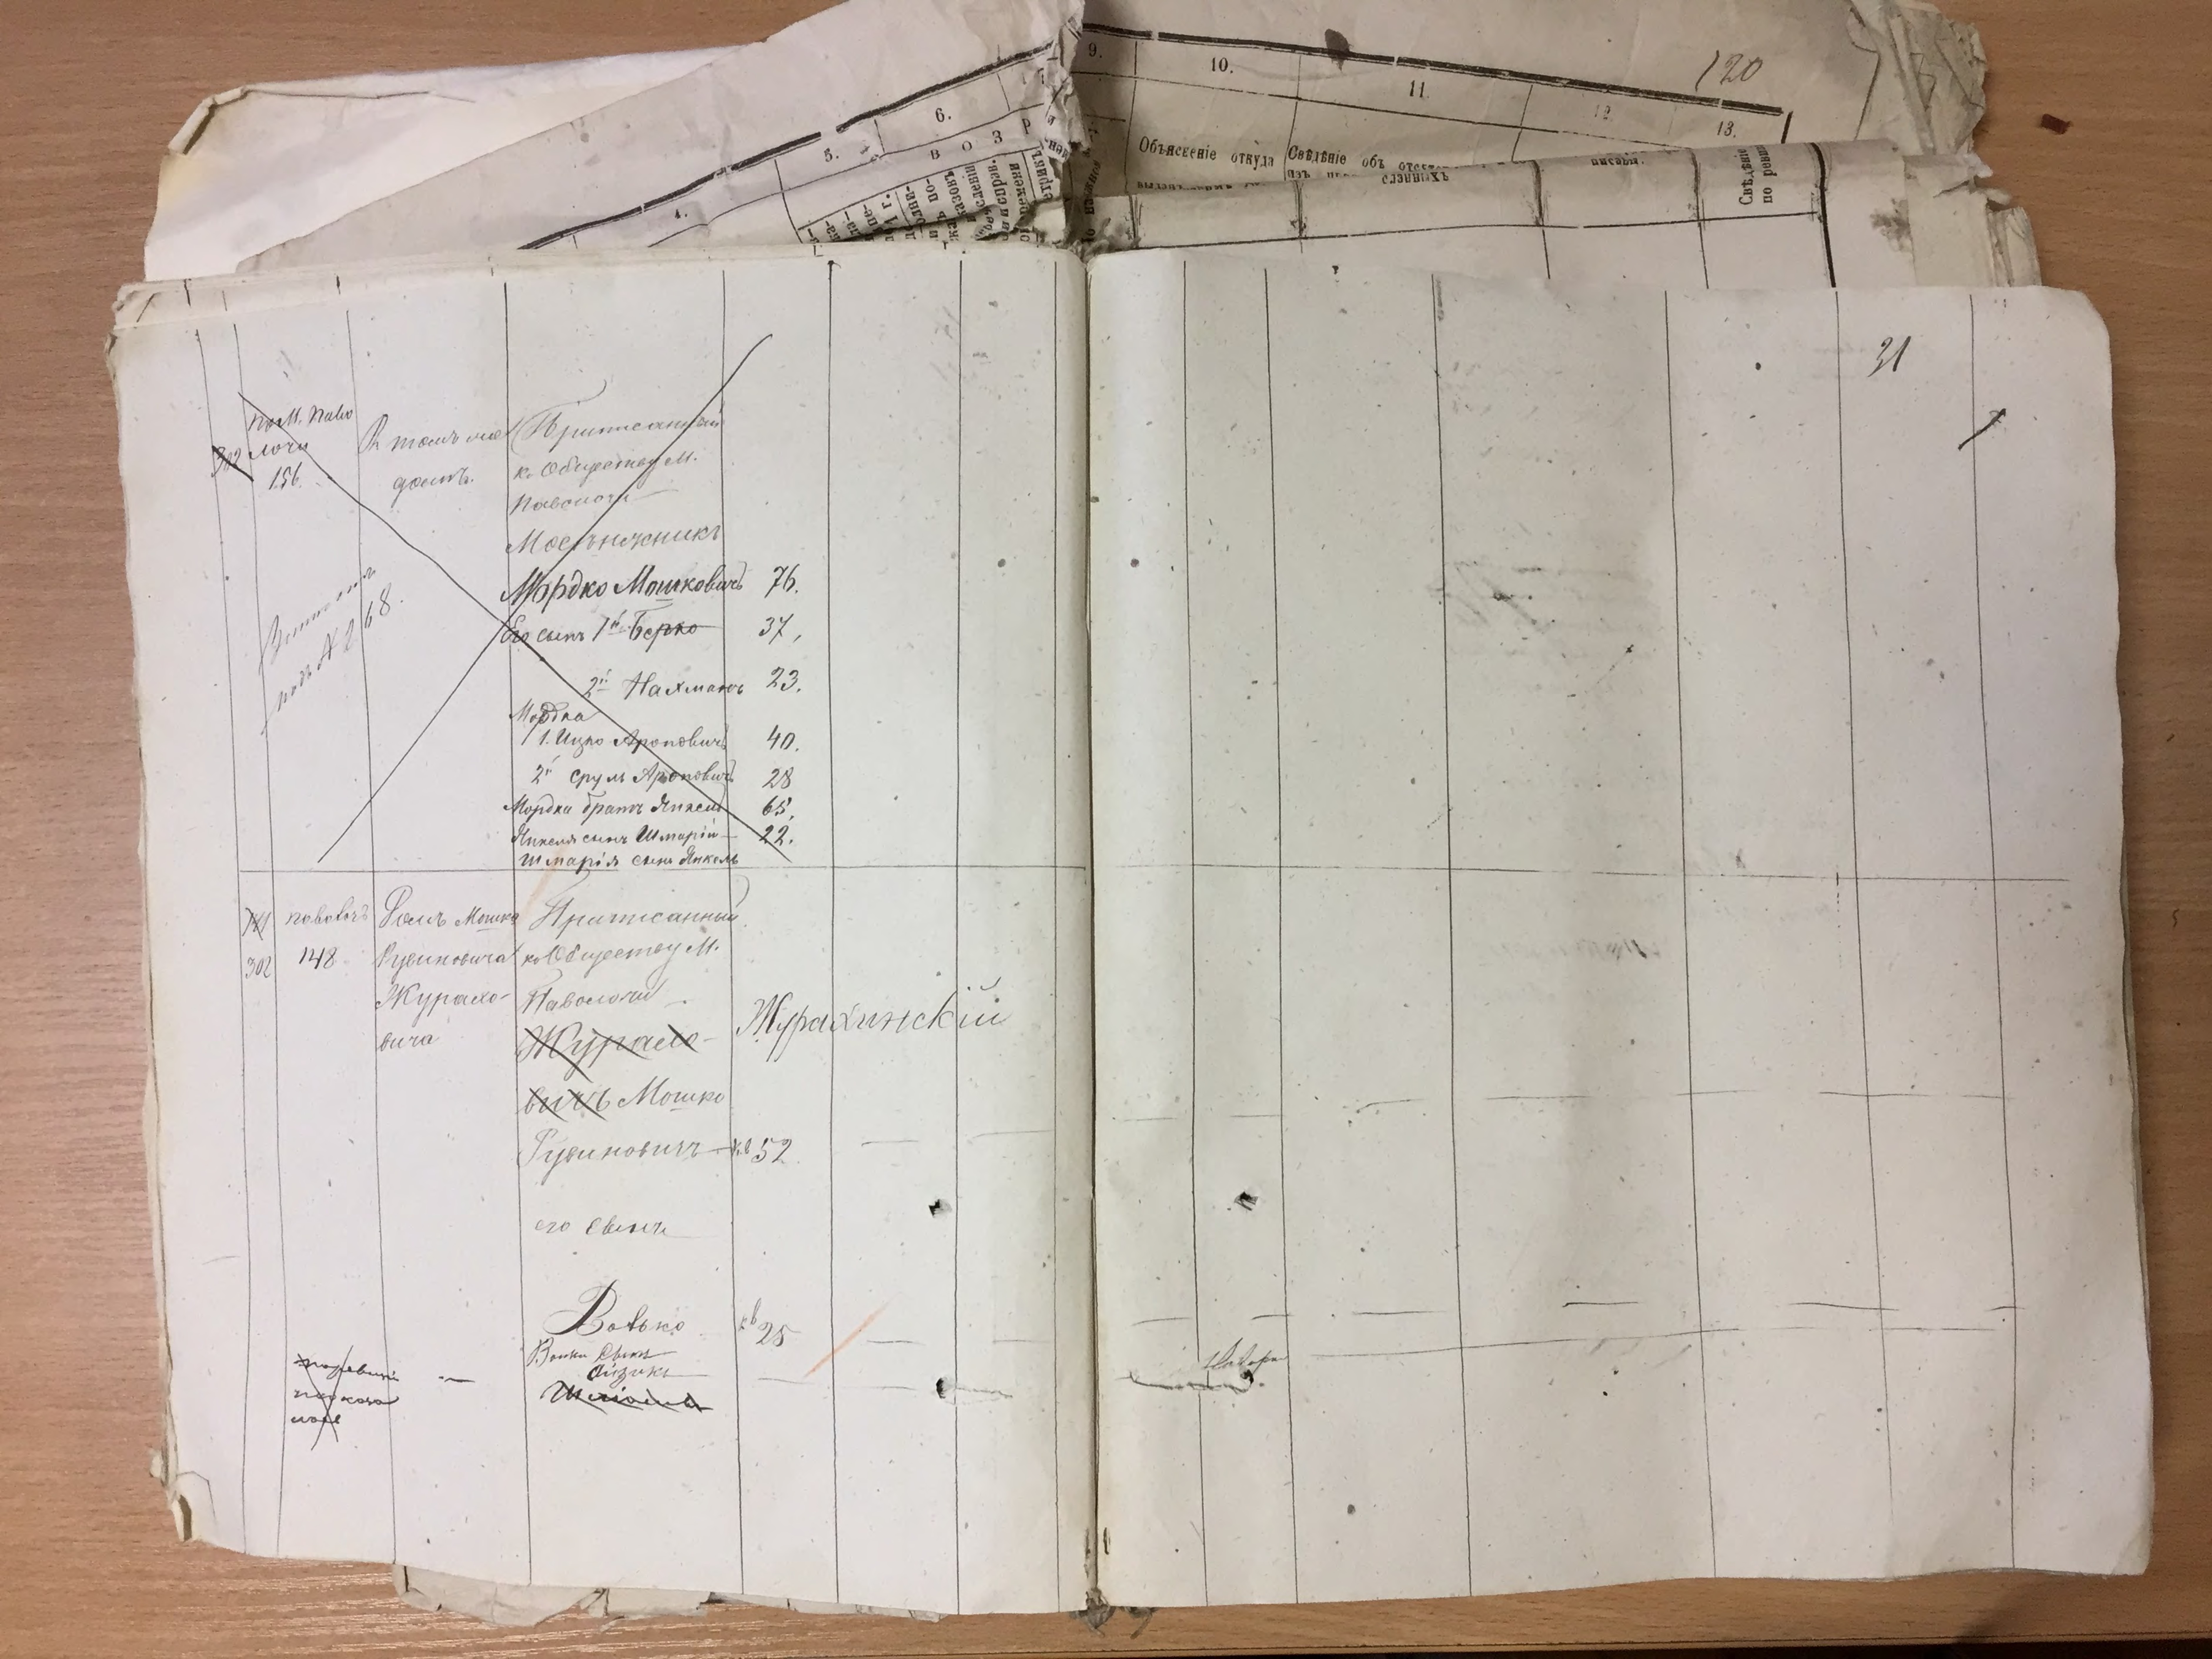 120
9.
10.
11.
12.
13.
6.
5.
4.
В О З Р
Объясненіе откуда
Свѣдѣніе объ
Свѣдѣніе
по ревиз
31
302
пом. Паво
лочи
156.
В томъ же
домѣ.
Приписанный
к Обществу М.
Паволочи
Мосѣнжникъ
Мордко Мошковичъ 76.
Его сынъ 1й Берко 37,
2й Нахманъ 23.
Мордка
1. Ицко Ароновичъ 40.
2й Сруль Ароновичъ 28
Мордки братъ Янкель 65,
Янкеля сынъ Шмарій 22.
Шмарія сынъ Янкель
подъ № 268.
302
Паволочь
148
Домъ Мошка
Рувиновича
Журахо-
вича
Приписанный
къ Обществу М.
Паволочи
Журахо-
вичъ Мошко
Журахинскій
Рувиновичъ 52
его сынъ
Волько 25
Вольки сынъ
Айзикъ